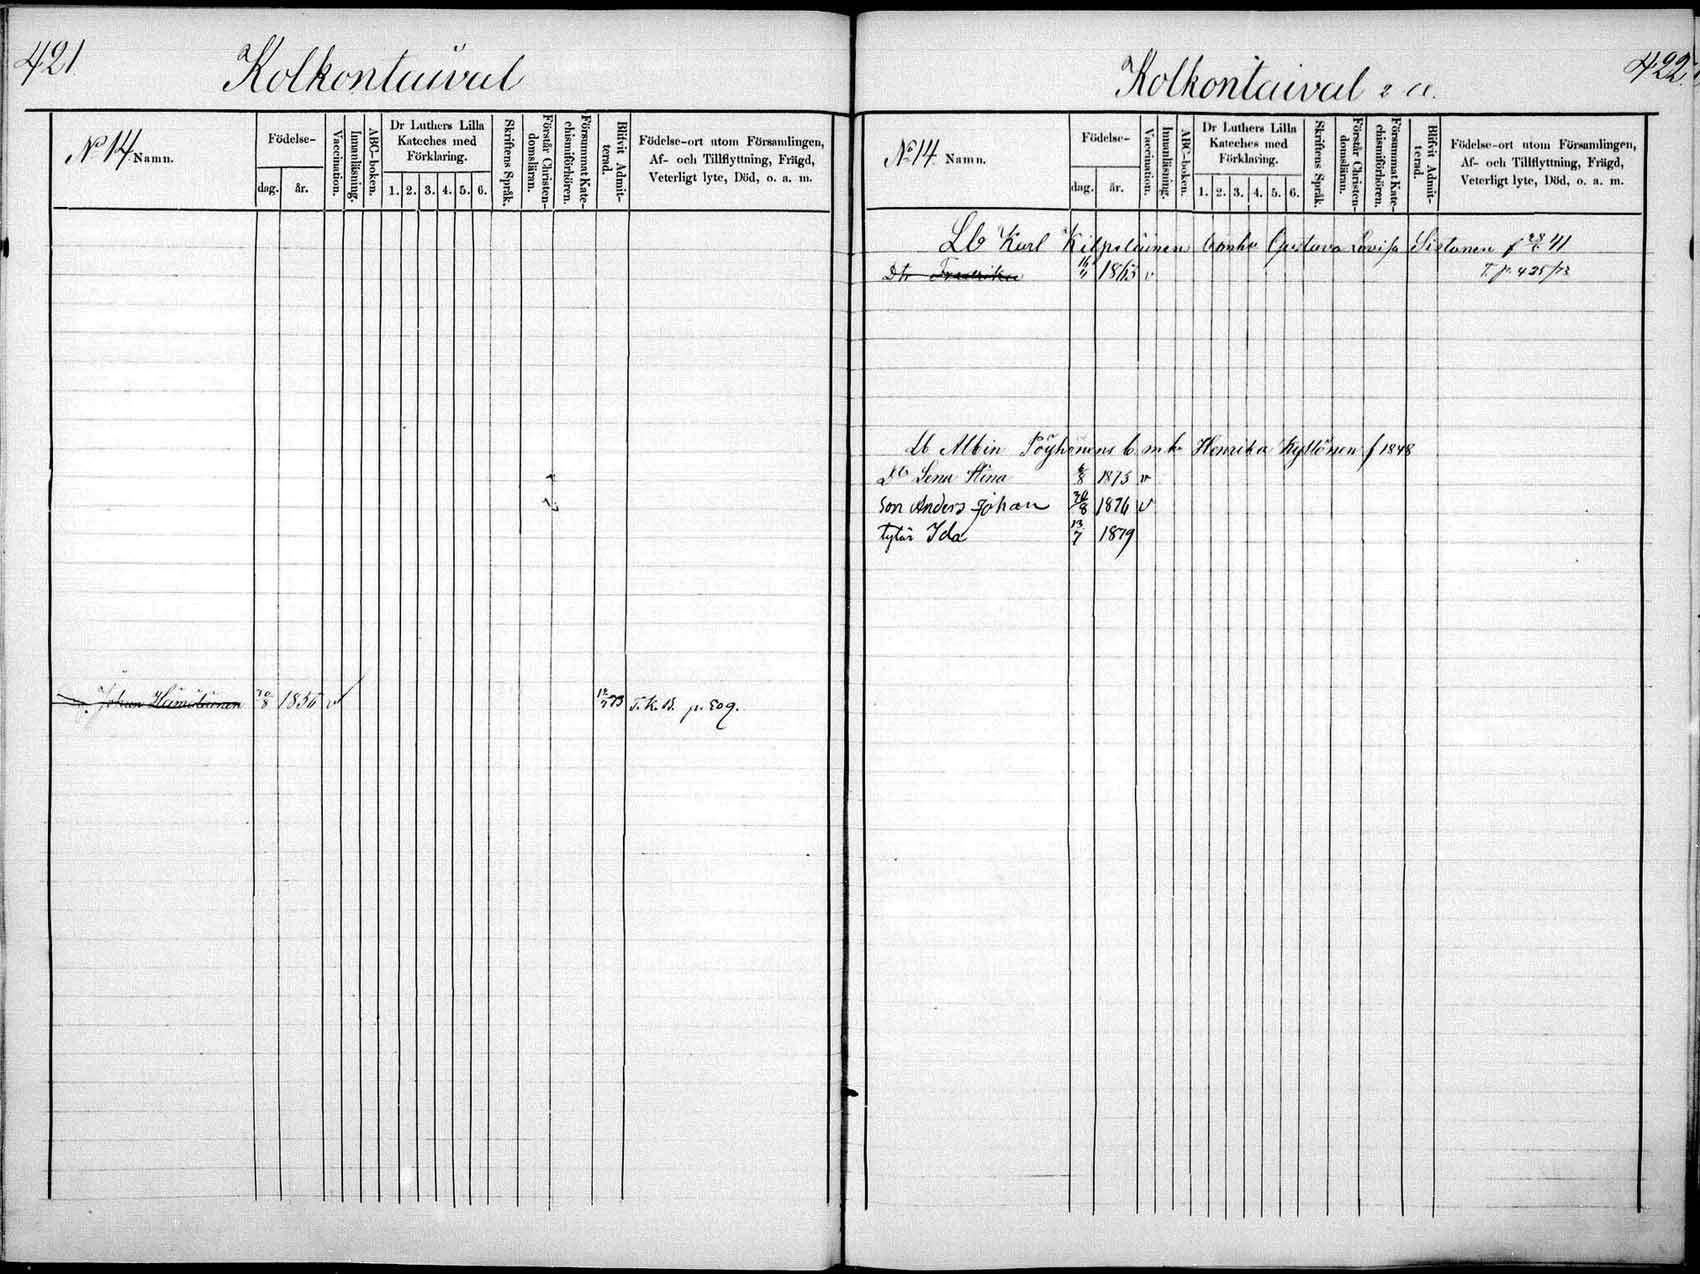 421
Kolkontaival
No 14 Namn.
Födelse-
dag. år.
Vaccination.
Innanläsning.
ABC-boken.
Dr Luthers Lilla
Kateches med
Förklaring.
1. 2. 3. 4. 5. 6.
Skriftens Språk.
Förstår Christen-
domsläran.
Försummat Kate-
chismiförhören.
Blifvit Admit-
terad.
Födelse-ort utom Församlingen,
Af- och Tillflyttning, Frägd,
Veterligt lyte, Död, o. a. m.
Johan 1856 v T.K.B. p. 209.
422
Kolkontaival 2 a.
No 14. Namn.
Födelse-
dag. år.
Vaccination.
Innanläsning.
ABC-boken.
Dr Luthers Lilla
Kateches med
Förklaring.
1. 2. 3. 4. 5. 6.
Skriftens Språk.
Förstår Christen-
domsläran.
Försummat Kate-
chismiförhören.
Blifvit Admit-
terad.
Födelse-ort utom Församlingen,
Af- och Tillflyttning, Frägd,
Veterligt lyte, Död, o. a. m.
Lb Karl Kilpeläinen Gustava Lovisa Sistonen f 41
Dtr Fredrika 1863 v T. p. 425
Lb Albin Pöyhönens b. m. h. Henrika Kyllönen f 1848
Lena Stina 6/8 1875 v
Son Anders Johan 30/8 1876 v
tytär Ida 13/7 1879